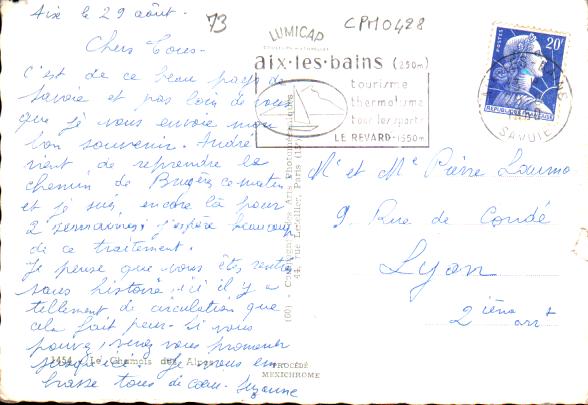 Aix le 29 août.
73
CPM0428
LUMICAP
Chers Tous.
C'est de ce beau pays de
Savoie et pas loin de vous
que je vous envoie mon
bon souvenir. André
vient de reprendre le
chemin de ce matin
et je suis encore là pour
2 semaines; j'espère beaucoup
de ce traitement.
Je pense que vous êtes rentrés
sans histoire. ici il y a
tellement de circulation que
cela fait peur. Si vous
pouvez, venez vous promener
jusqu'ici. Je vous em
brasse tous de cœur. Suzanne
1454. Le Chamois des Alpes
PROCÉDÉ
MEXICHROME
(60) - Compagnie des Arts Photomécaniques
44, rue Letellier, Paris (15e)
aix-les-bains (250m)
tourisme
thermalisme
tous les sports
LE REVARD-1550m
POSTES
20F
REPUBLIQUE FRANÇAISE
AIX LES BAINS
SAVOIE
Mr et Me Pierre
9 Rue de Condé
Lyon
2ième arrt